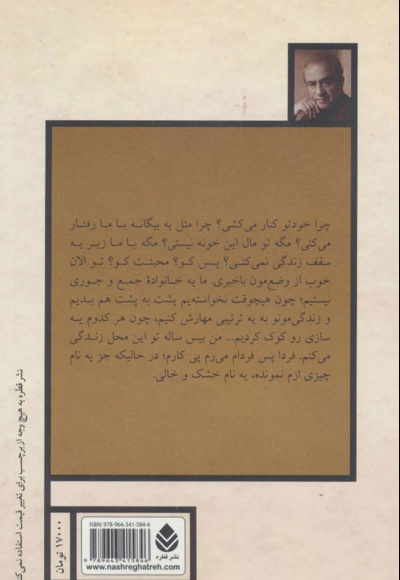 چرا خودتو کنار می‌کشی؟ چرا مثل یه بیگانه با ما رفتار
می‌کنی؟ مگه تو مال این خونه نیستی؟ مگه با ما زیر یه
سقف زندگی نمی‌کنی؟ پس کو؟ محبتت کو؟ تو الان
خوب از وضع‌مون باخبری. ما یه خانوادهٔ جمع و جوری
نیستیم؛ چون هیچوقت نخواستیم پشت به پشت هم بدیم
و زندگی‌مونو به یه ترتیبی مهارش کنیم، چون هر کدوم یه
سازی رو کوک کردیم... من بیس ساله تو این محل زندگی
می‌کنم. فردا پس فردام می‌رم پی کارم؛ در حالیکه جز یه نام
چیزی ازم نمونده، یه نام خشک و خالی.
نشر قطره به هیچ وجه از برچسب برای تغییر قیمت استفاده نمی‌کند
۱۷۰۰۰ تومان
ISBN: 978-964-341-584-6
9789643415846
نشر قطره
www.nashreghatreh.com